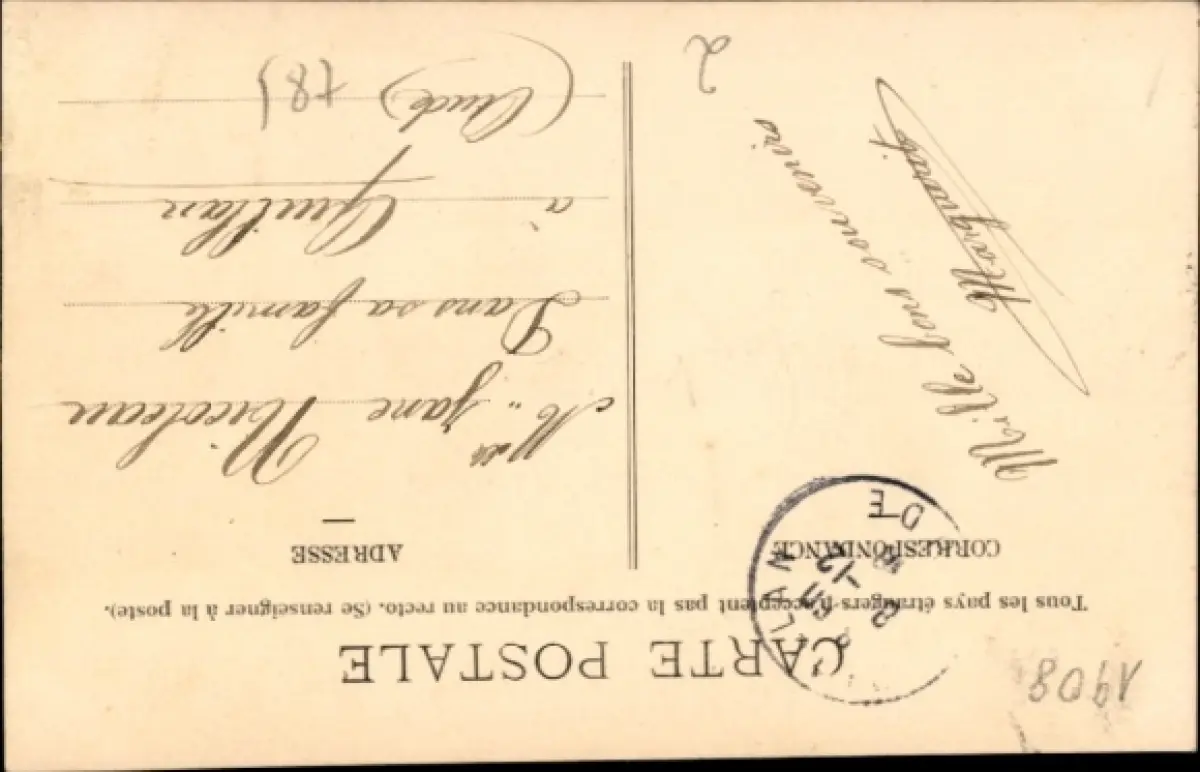 1908
CARTE POSTALE
Tous les pays étrangers n'acceptent pas la correspondance au recto. (Se renseigner à la poste).
CORRESPONDANCE
ADRESSE
Mille bons souvenirs
Marguerite
2
Melle Jane Nicoleau
Dans sa famille
à Quillan
(Aude)
LLAN
-12
DE